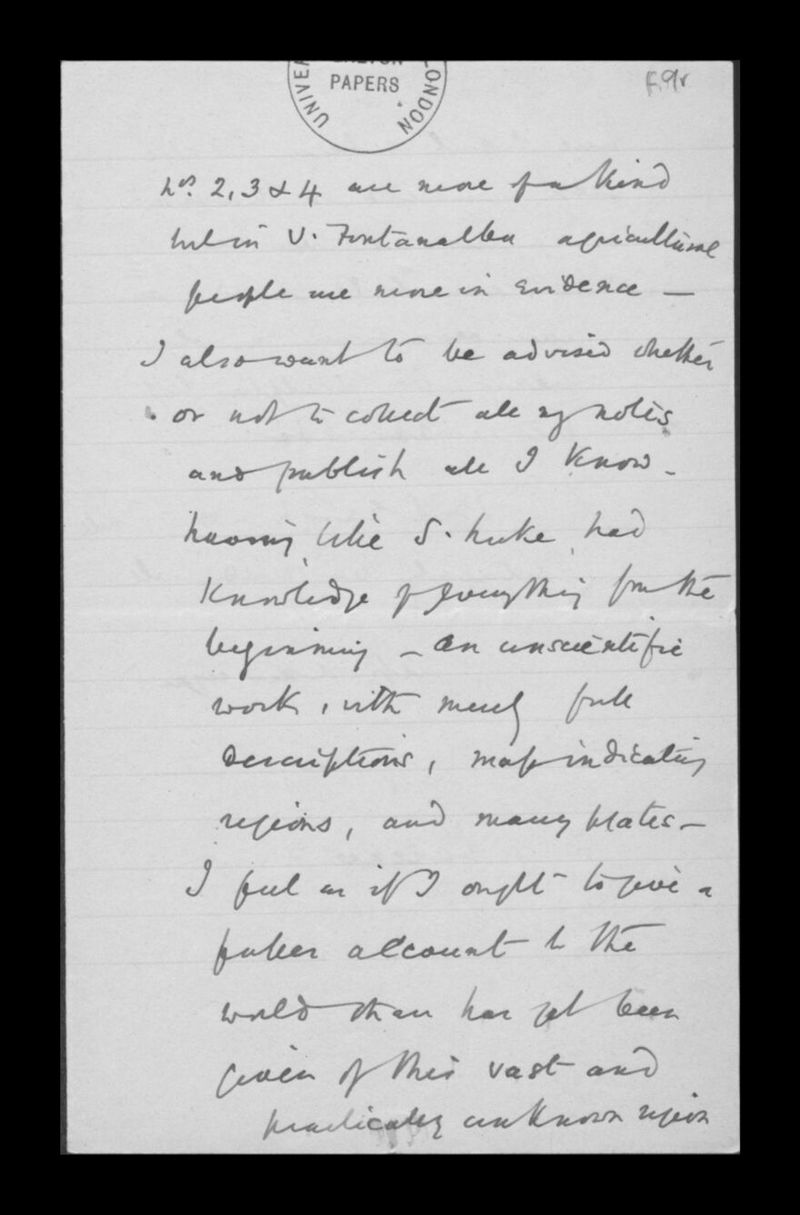 UNIVER
GALTON
PAPERS
LONDON
F.9r
Nos. 2, 3 & 4 are more of a kind
but in V. Fontanalba agricultural
people are more in evidence —
I also want to be advised whether
or not to collect all my notes
and publish all I know -
having, like S. Luke, had
knowledge of everything from the
beginning — an unscientific
work, with merely full
descriptions, map indicating
regions, and many plates —
I feel as if I ought to give a
fuller account to the
world than has yet been
given of this vast and
practically unknown region